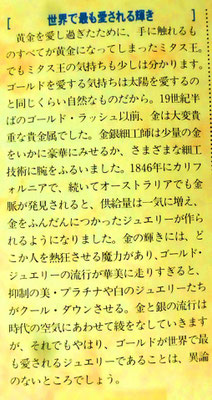 [ 世界で最も愛される輝き ]
黄金を愛し過ぎたために、手に触れるも
のすべてが黄金になってしまったミダス王。
でもミダス王の気持ちも少しは分かります。
ゴールドを愛する気持ちは太陽を愛するの
と同じくらい自然なものだから。19世紀半
ばのゴールド・ラッシュ以前、金は大変貴
重な貴金属でした。金銀細工師は少量の金
をいかに豪華にみせるか、さまざまな細工
技術に腕をふるいました。1846年にカリフ
ォルニアで、続いてオーストラリアでも金
脈が発見されると、供給量は一気に増え、
金をふんだんにつかったジュエリーが作ら
れるようになりました。金の輝きには、ど
こか人を熱狂させる魔力があり、ゴールド・
ジュエリーの流行が華美に走りすぎると、
抑制の美・プラチナや白のジュエリーたち
がクール・ダウンさせる。金と銀の流行は
時代の空気にあわせて綾をなしていきます
が、それでもやはり、ゴールドが世界で最
も愛されるジュエリーであることは、異論
のないところでしょう。